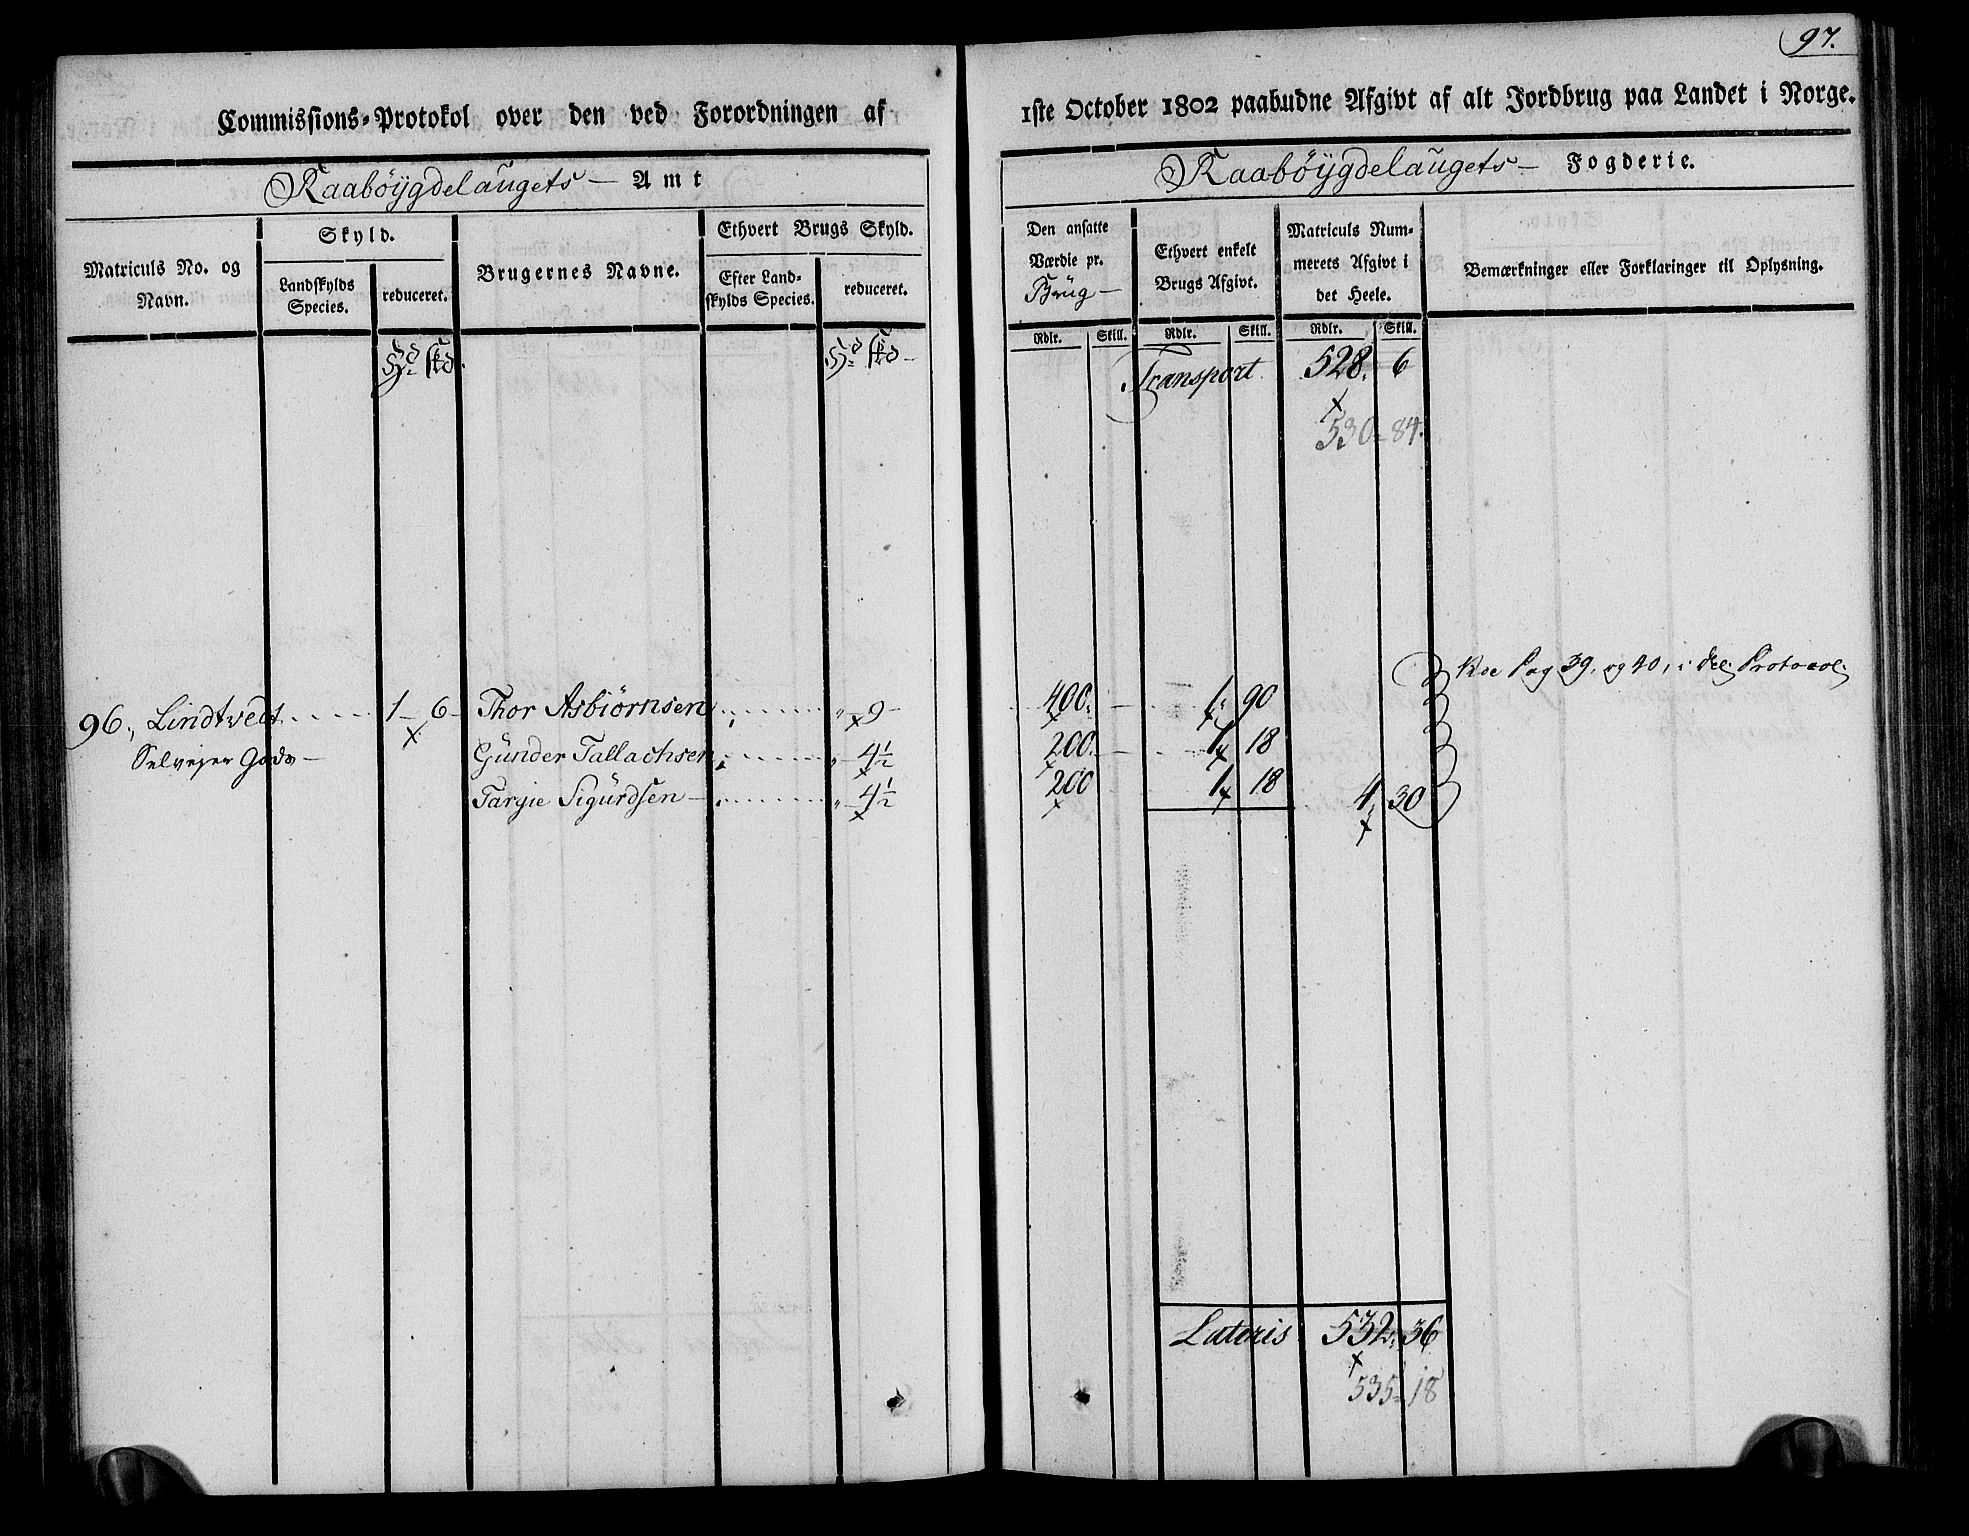 97.
Commissions-Protokol over den ved Forordningen af 1ste October 1802 paabudne Afgivt af alt Jordbrug paa Landet i Norge.
Raabøÿgdelaugets — Amt
Raabøÿgdelaugets — Fogderie.
Matriculs No. og Navn.
Skyld.
Landskylds Species.
reduceret.
Brugernes Navne.
Ethvert Brugs Skyld.
Efter Landskylds Species.
reduceret.
Den ansatte Værdie pr. Brug —
Ethvert enkelt Brugs Afgivt.
Matriculs Nummerets Afgivt i det Heele.
Bemærkninger eller Forklaringer til Oplysning.
Rdlr. Skill. Rdlr. Skill. Rdlr. Skill.
Hd. skd. Hd. skd —
Transport 528. 6
530 - 84.
Pag 39. og 40, i Protocol.
96., Lindtvedt ..... 1 — 6 — Thor Asbiørnsen ........ „ — 9 — 400. — 1. 90
Selveyer Gods — Günder Tallachsen ........ „ — 4½ 200. — 1 18
Targie Sigürdsen — ........ „ — 4½ 200 1 18 4. 30
Lateris 532. 36
535 - 18